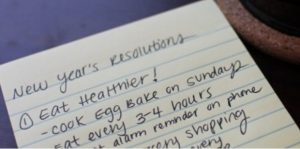 New Year's Resolutions
① Eat Healthier!
- Cook Egg Bake on Sundays
Eat every 3-4 hours
alarm reminder on phone
shopping